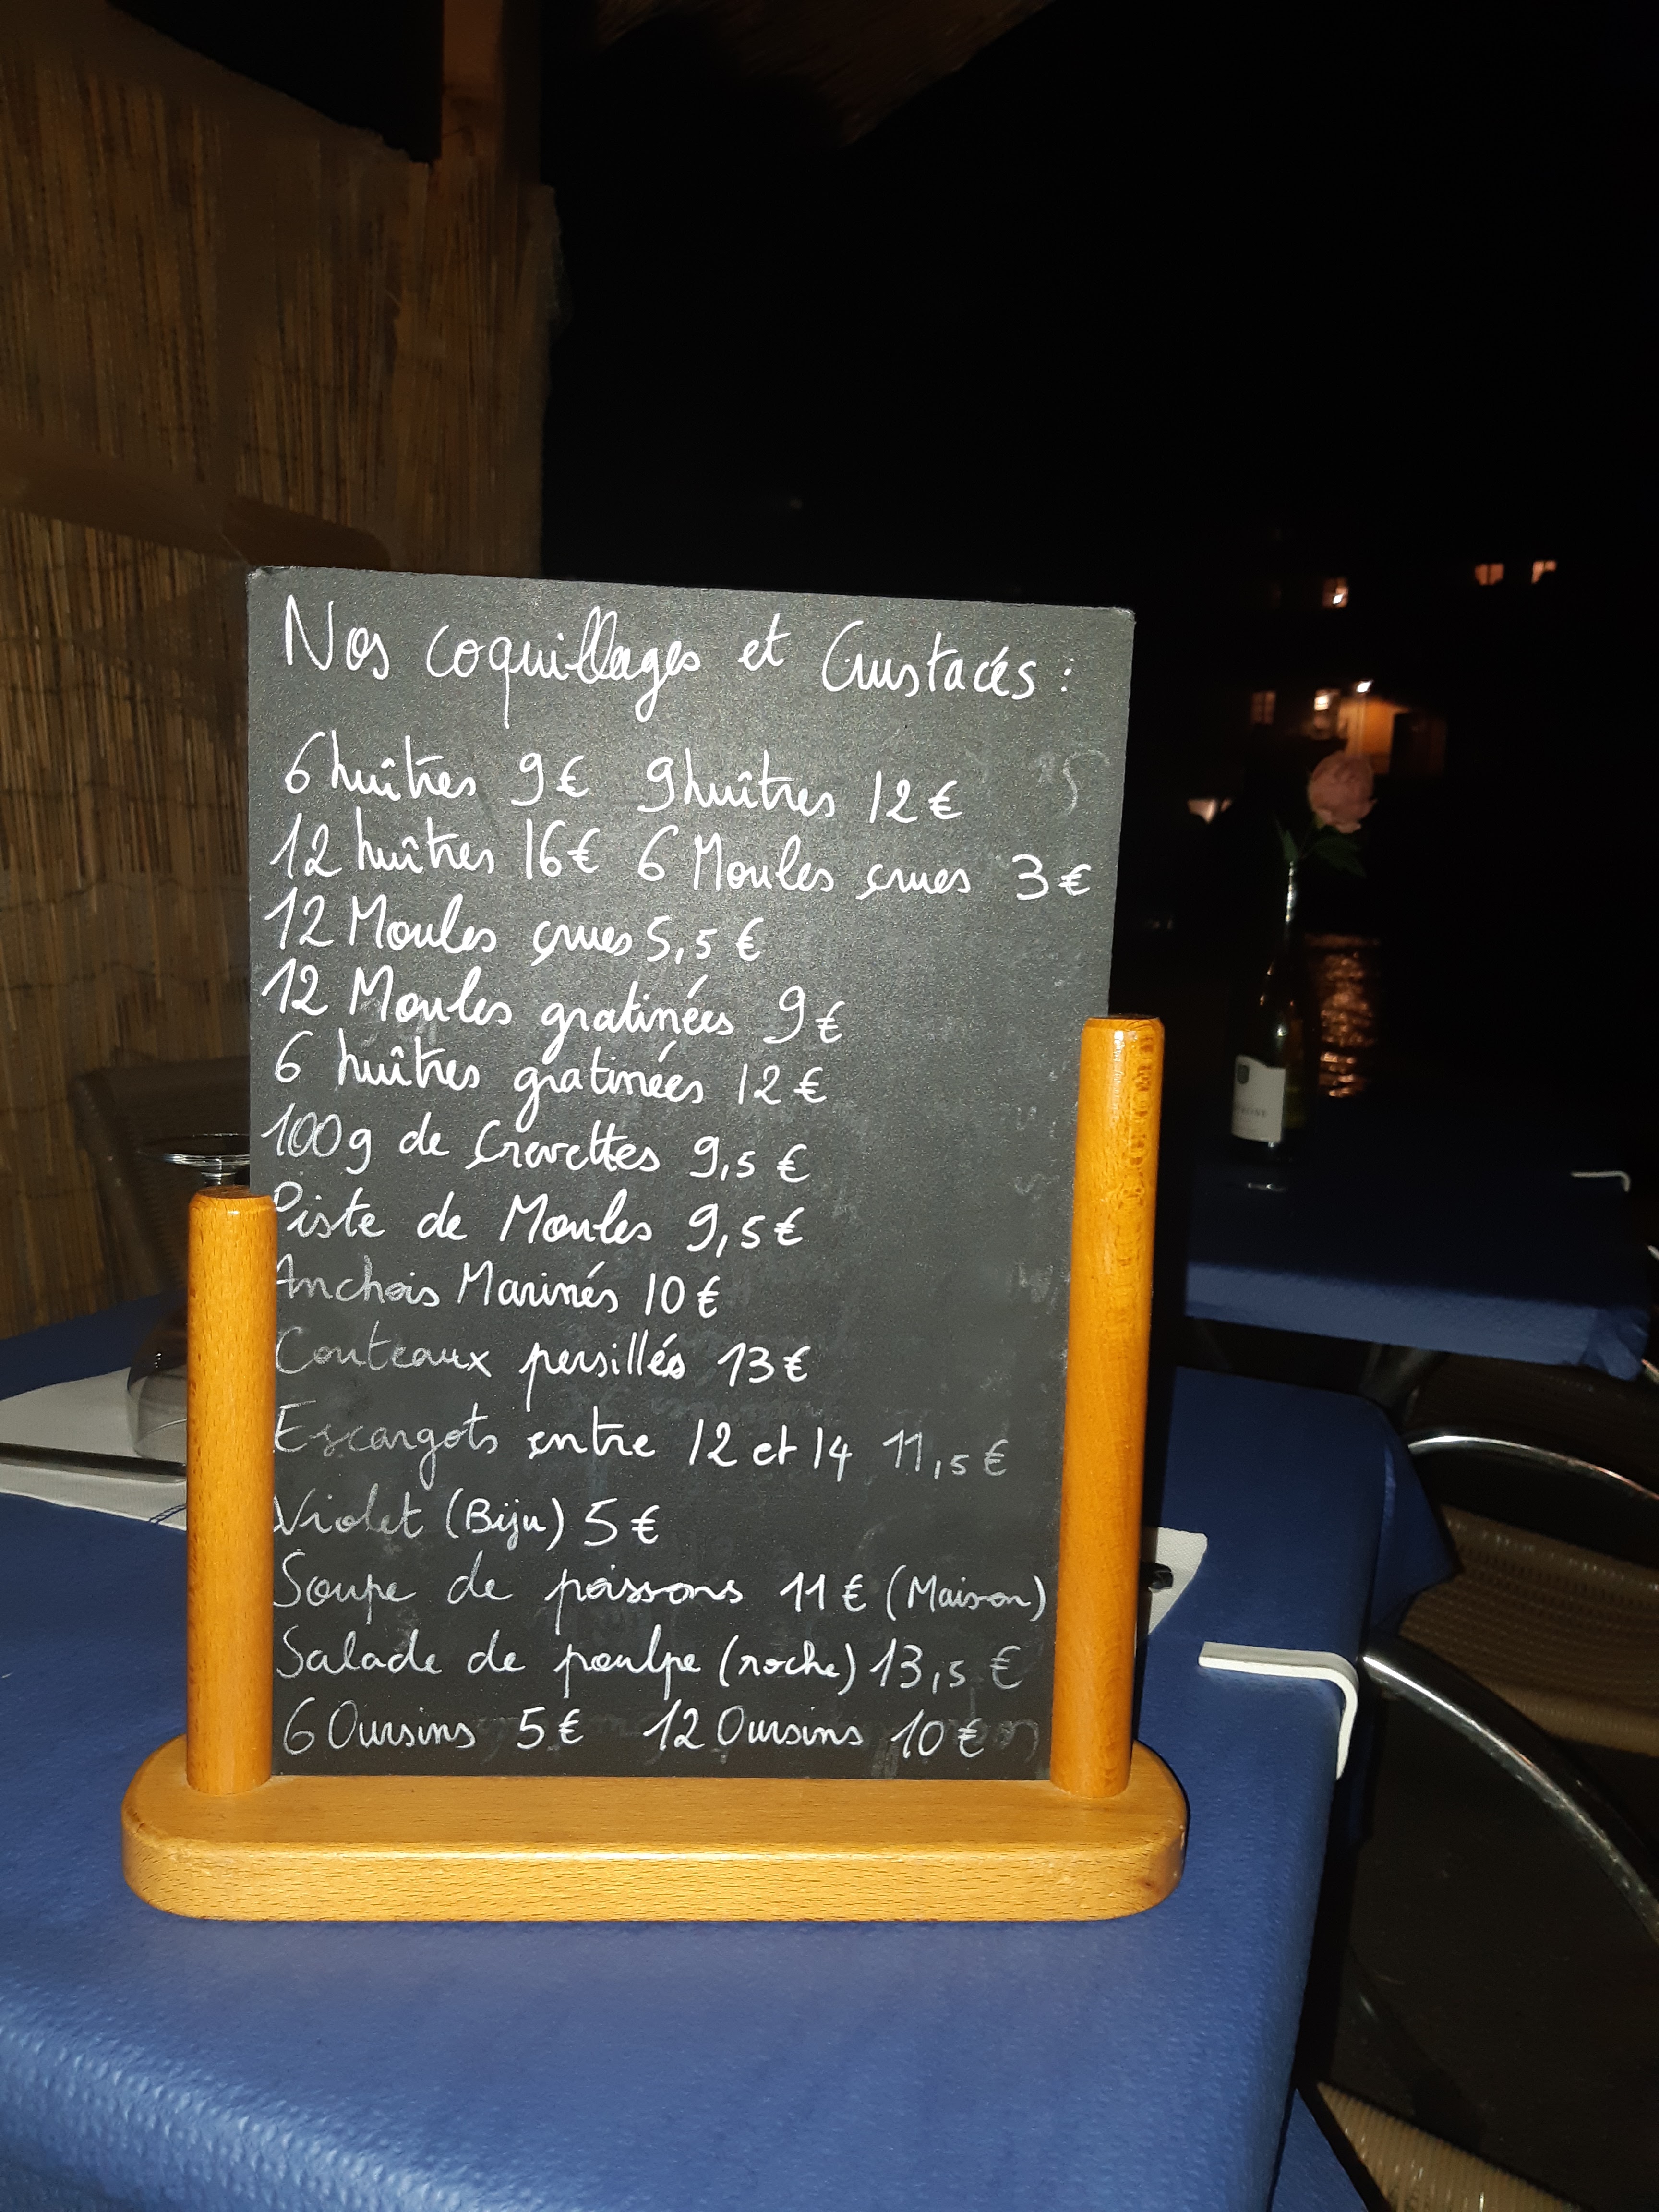 Nos coquillages et Crustacés :
6 huîtres 9€ 9 huîtres 12€
12 huîtres 16€ 6 Moules crues 3€
12 Moules crues 5,5€
12 Moules gratinées 9€
6 huîtres gratinées 12€
100g de Crevettes 9,5€
Piste de Moules 9,5€
Anchois Marinés 10€
Couteaux persillés 13€
Escargots entre 12 et 14 11,5€
Violet (Biju) 5€
Soupe de poissons 11€ (Maison)
Salade de poulpe (roche) 13,5€
6 Oursins 5€ 12 Oursins 10€